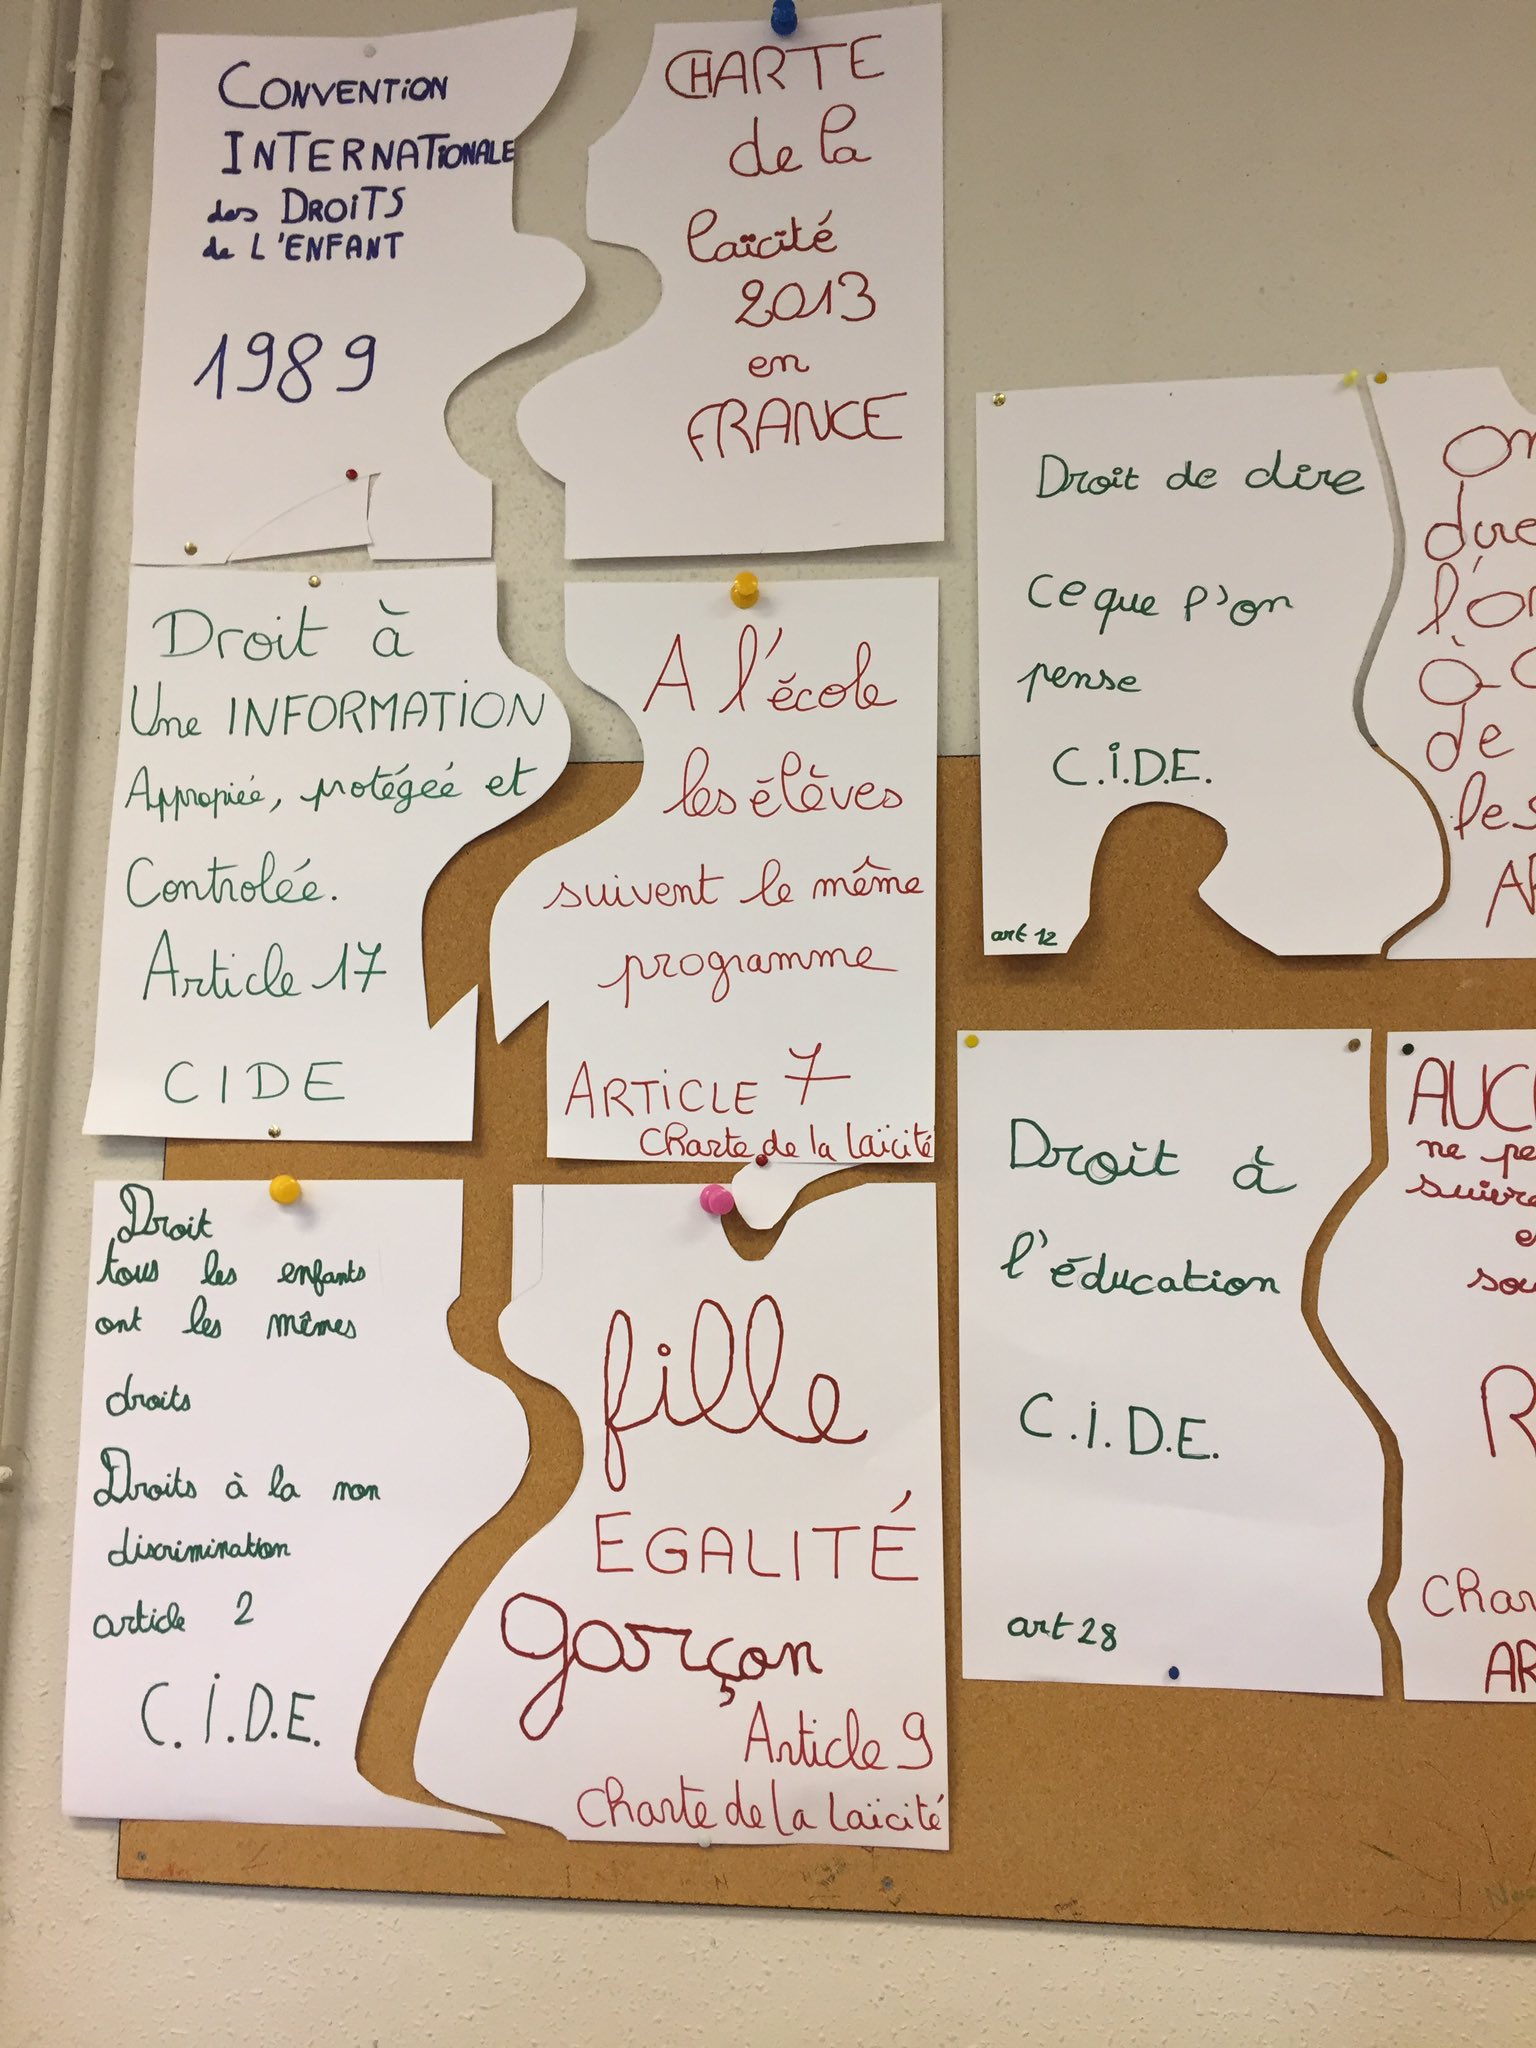 CONVENTION
INTERNATIONALE
des DROITS
de L'ENFANT
1989
CHARTE
de la
laïcité
2013
en
FRANCE
Droit à
Une INFORMATION
Appropiée, protégée et
Contrôlée.
Article 17
CIDE
A l'école
les élèves
suivent le même
programme
ARTICLE 7
Charte de la laïcité
Droit
tous les enfants
ont les mêmes
droits
Droits à la non
discrimination
article 2
C.I.D.E.
fille
EGALITÉ
garçon
Article 9
Charte de la laïcité
Droit de dire
ce que l'on
pense
C.I.D.E.
art 12
dire
de
Droit à
l'éducation
C.I.D.E.
art 28